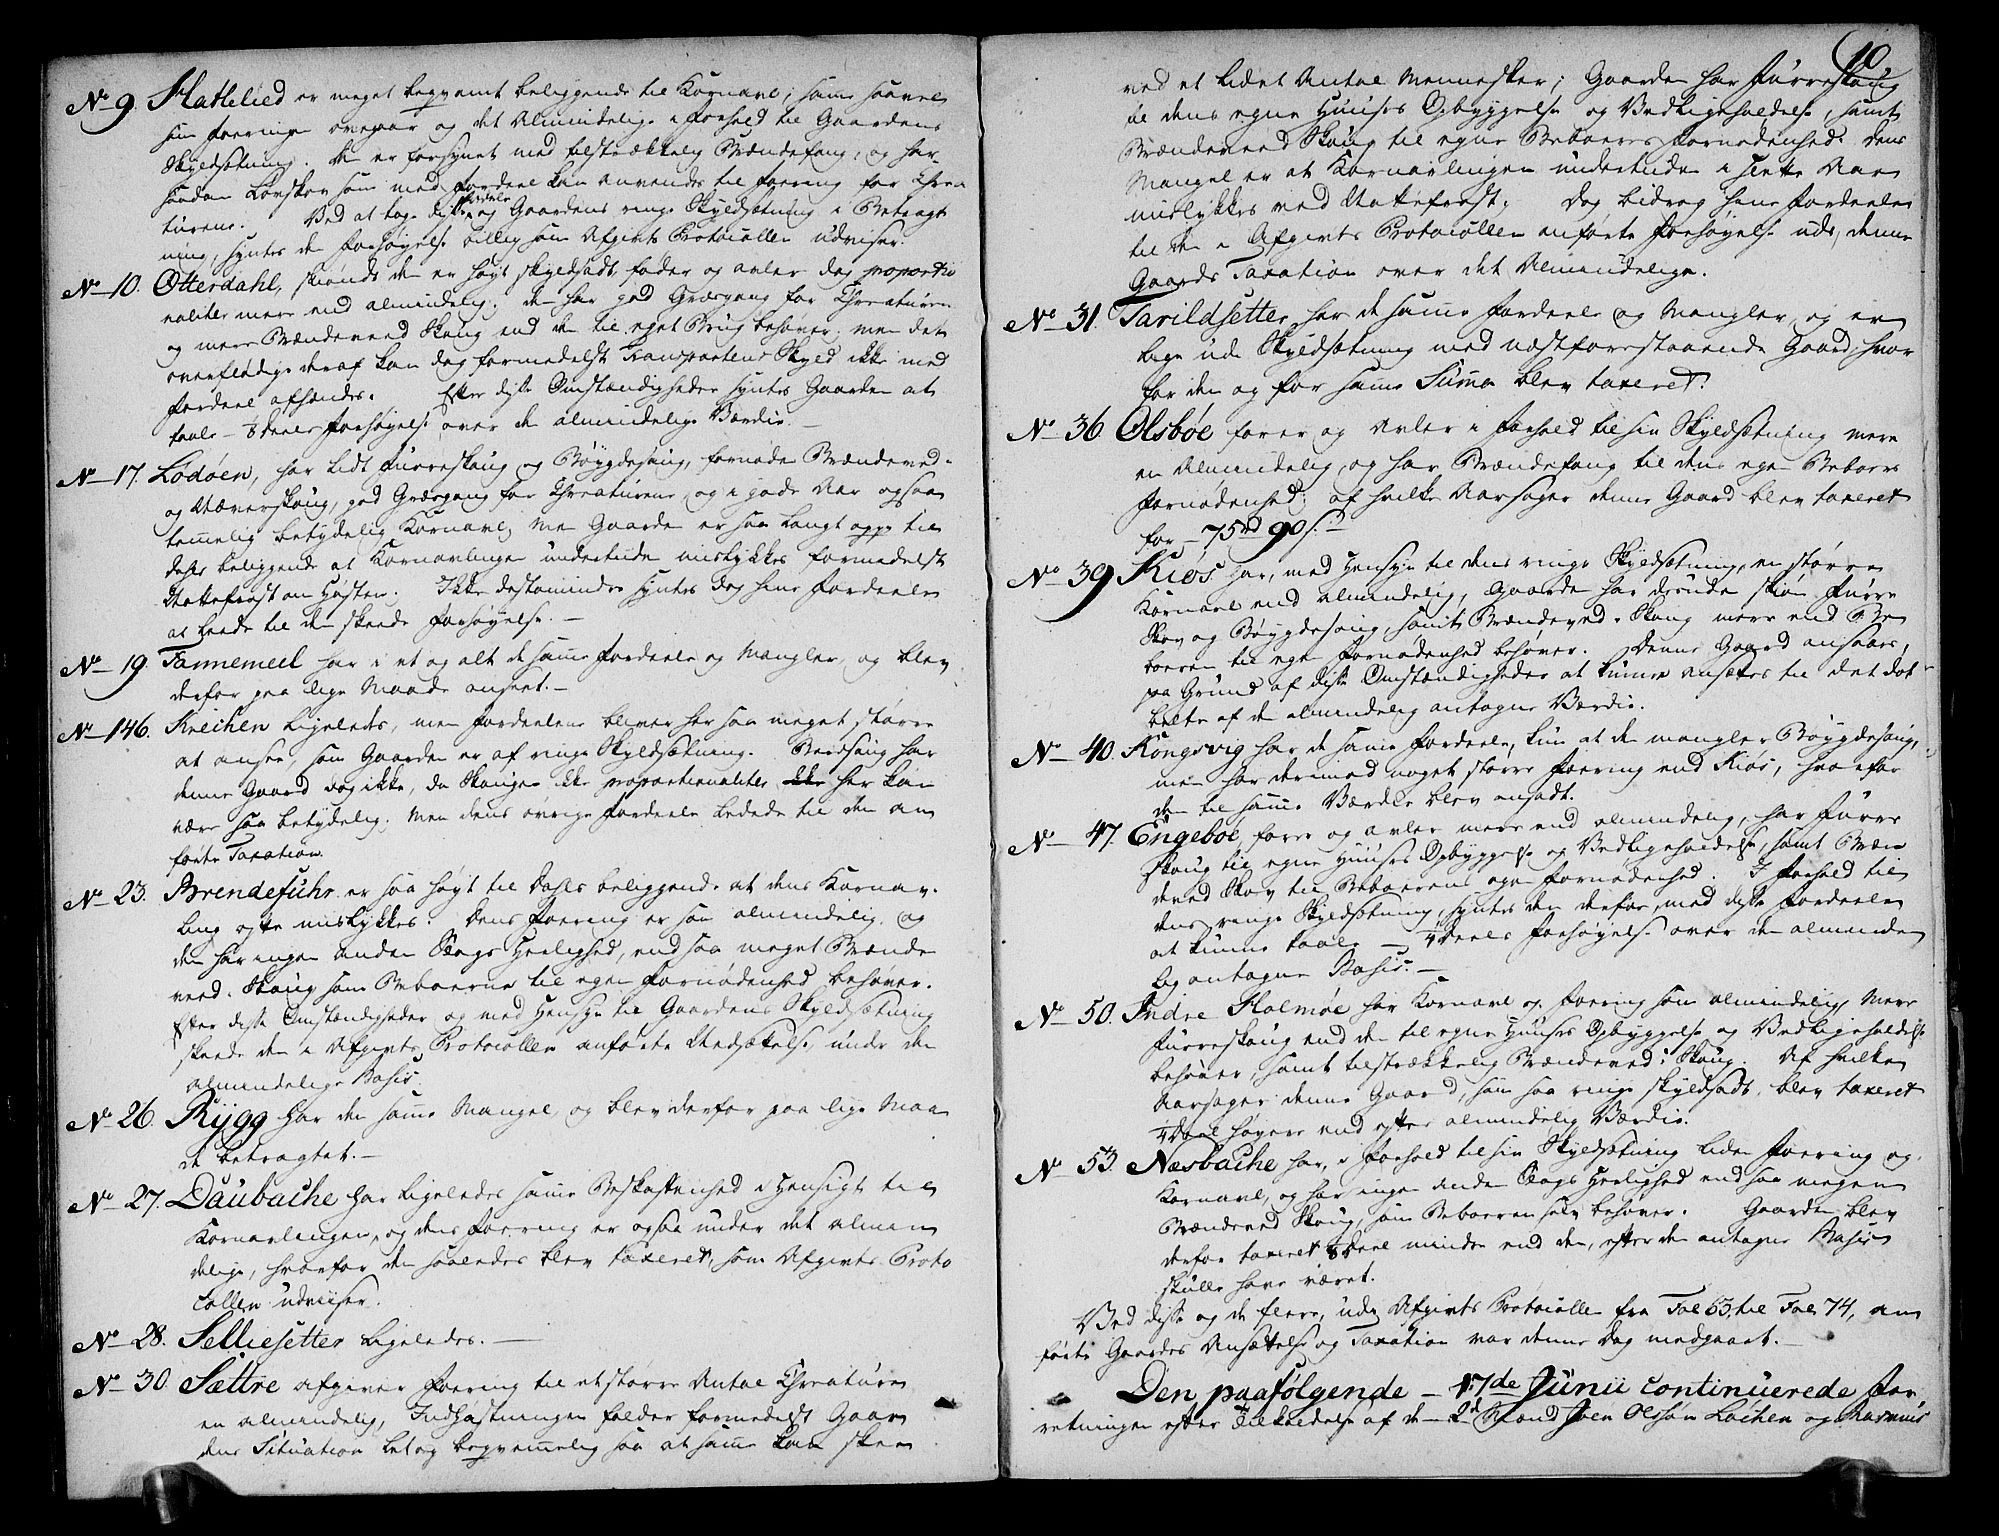 No 9. Hattelied er meget beqvemt beliggende til Kornavl; samme saavel
som Foeringen overgaar og det Almindelige i Forhold til Gaardens
Skyldsætning. Den er forsynet med tilstrækkelig Brændefang, og har
saadan Løvskov som med Fordeel kan anvendes til Foering for Chrea
turene. Ved at tage disse Fordele og Gaardens ringe Skyldsætning i Betragt
ning, syntes den Forhøyelse billig som Afgivts Protocollen udviser.
No 10. Otterdahl, skiøndt den er høyt skyldsadt, føder og avler dog proportio
naliter meer end almindelig; den har god Græsgang for Chreaturene
og meer Brændeveed Skoug end den til eget Brug behøver; men det
overflødige deraf kan dog formedelst Transportens Skyld ikke med
Fordeel afhændes. Efter disse Omstændigheder syntes Gaarden at
taale - 8 Deels Forhøyelse over den almindelige Værdie. -
No 17. Lødøen, har lidt Furreskoug og Bøygdesaug, fornøden Brændeved-
og Næverskoug, god Græsgang for Chreaturene og i gode Aar ogsaa
temmelig betydelig Kornavl; Men Gaarden er saa langt opp til
Dahls beliggende at Kornavlingen undertiden mislykkes formedelst
Nattefrost om Høsten. Ikke destomindre syntes dog hine Fordeele
at lede til den skeede Forhøyelse. -
No 19. Tannemeel har i et og alt de samme Fordeele og Mangler, og blev
derfor paa lige Maade anseet. -
No 146. Kneiken ligeledes, men Fordeelene bliver her saa meget større
at ansee, som Gaarden er af ringe Skyldsætning. Bordsaug har
denne Gaard dog ikke, da Skougen ikke proportionaliter her kan
være saa betydelig; Men dens øvrige Fordeele ledede til den an
førte Taxation.
No 23. Brendefuhr er saa høyt til Dahls beliggende at dens Kornav-
ling ofte mislykkes. Dens Foering er som almindelig og
den har ingen anden Skougs Herlighed, end saa meget Brænde
veed Skoug som Beboerne til egen Fornødenhed behøver.
Efter disse Omstændigheder og med Hensyn til Gaardens Skyldsætning
skeede den i Afgivts Protocollen anførte Nedsættelse under den
almindelige Basis.
No 26. Rygg har den samme Mangel, og blev derfor paa lige Maa
de betragtet. -
No 27. Daubache har ligeledes samme Beskaffenhed i Hensigt til
Kornavlingen, og dens Foering er ogsaa under det almin
delige, hvorfor den saaledes blev taxeret, som Afgivts Proto
collen udviiser.
No 28. Selliesetter ligeledes. -
No 30. Sættre afgiver Foering til et større Antal Chreature
en almindelig, Indhøstningen falder formedelst Gaar
dens Situation beleg beqvemmelig saa at samme kan skee
10
ved et lidet Antal Mennesker; Gaarden har Furreskoug
til dens egne Huuses Opbyggelse og Vedligeholdelse, samt
Brændeveed Skoug til egne Beboeres Fornødenhed. Dens
Mangel er at Kornavlingen undertiden i slette Aar
mislykkes ved Nattefrost; Dog bidrog hine Fordeele
til den i Afgivts Protocollen anførte Forhøyelse udi denne
Gaards Taxation over det Almindelige.
No 31. Tarildsetter har de samme Fordeele og Mangler, og er
lige udi Skyldsætning med næstforestaaende Gaard, hvor
for den og for samme Summa blev taxeret.
No 36. Olsbøe foerer og Avler i Forhold til sin Skyldsætning mere
en Almindelig, og har Brændefang til dens egen Beboers
Fornødenhed; af hvilke Aarsager denne Gaard blev taxeret
for - 75 rd 90 s.
No 39 Kiøs har, med Hensyn til dens ringe Skyldsætning, en større
Kornavl end almindelig, Gaarden har desuden skiøn Furre
Skov og Bøygdesaug, samt Brændeved Skoug meer end Be
boeren til egen Fornødenhed behøver. Denne Gaard ansaaes,
paa Grund af disse Omstændigheder at kunne ansættes til det dob
belte af den almindelig antagne Værdie.
No 40. Kongsvig har de samme Fordeele, kun at den mangler Bøygdesaug,
men har derimod noget større Foering end Kiøs, hvorfor
den til samme Værdie blev ansadt.
No 47. Engeboe, foerer og avler meer end almindelig, har Furre
skoug til egne Huuses Opbyggelse og Vedligeholdelse, samt Bræn
deved Skov til Beboerens egen Fornødenhed. I Forhold til
dens ringe Skyldsætning, syntes den derfor med disse Fordeele
at kunne taale - 4 Deels Forhøyelse over den alminde
lig antagne Basis. -
No 50. Indre Holmøe har Kornavl og Foering som almindelig, Meer
Furreskoug end den til egne Huuses Opbyggelse og Vedligeholdelse
behøver, samt tilstrækkelig Brændeved Skoug. Af hvilken
Aarsager denne Gaard, som saa ringe skyldsadt, blev taxeret
4 Deel høyere end efter almindelig Værdie.
No 53. Næsbache har, i Forhold til sin Skyldsætning liden Foering og
Kornavl, og har ingen anden Skougs Herlighed end saa megen
Brændeved Skoug, som Beboeren selv behøver. Gaarden blev
derfor taxeret 8 Deel mindre end den, efter den antagne Basis
skulle have været.
Ved disse og de fleere, udi Afgivts Protocollen fra Fol 63, til Fol 74, an
førte Gaardes Ansættelse og Taxation var denne Dag medgaaet. -
Den paafølgende - 17de Junii continuerede For
retningen efter Tilkaldelse af de - 2d Mænd Joen Olsøn Løcken og Rasmus